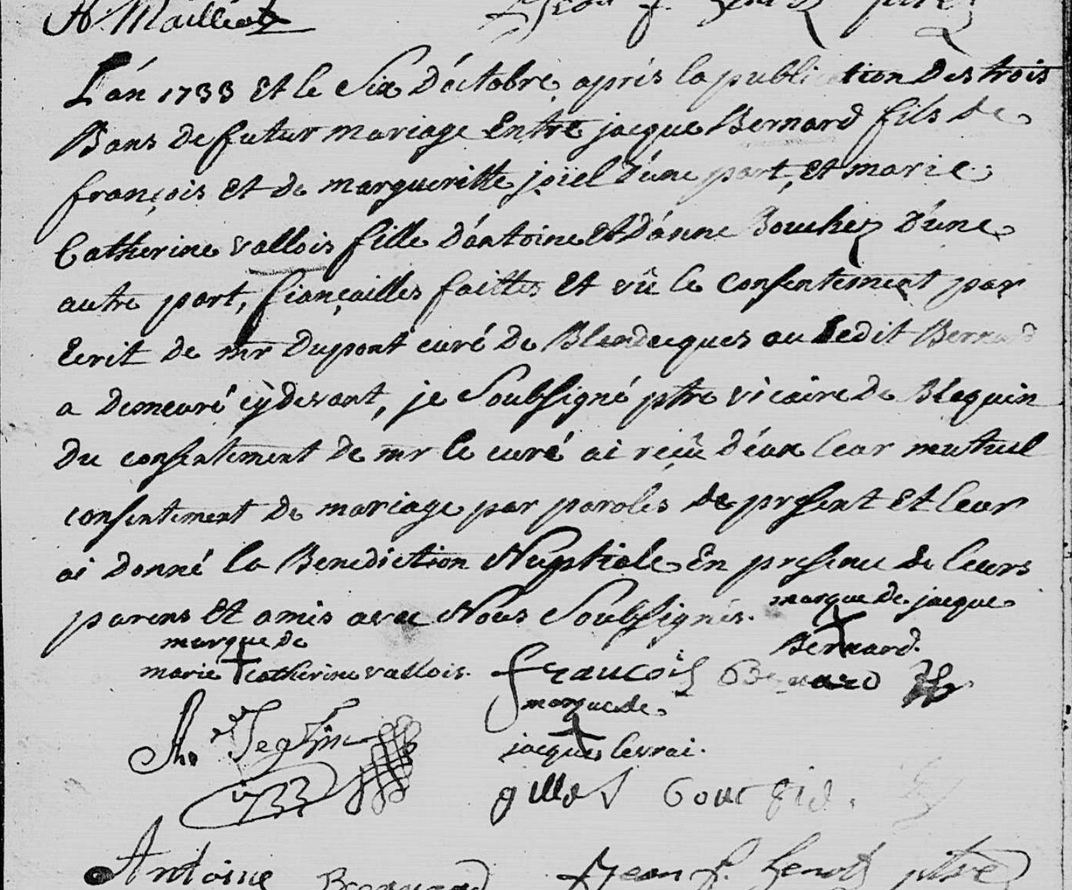 A Mailliart Jean f.
L'an 1733 Et le Six d'octobre après la publication Des trois
Bans de futur mariage Entre jacque Bernard fils de
françois et de margueritte joïel d'une part, et marie
Catherine vallois fille d'antoine Et d'anne Bouchez d'une
autre part, fiançailles faittes Et vû le consentement par
Ecrit de mr Dupont curé de Blendecques ou ledit Bernard
a demeuré cÿ devant, je Soubsigné ptre vicaire de Blequin
du consentement de mr le curé ai reçu d'eux leur mutuel
consentement de mariage par paroles de present et leur
ai donné la Benediction Nuptiale En presence de leurs
parens Et amis avec Nous Soubsignés.
marque de jacque
Bernard.
marque de
marie catherine vallois.
francois Bernard
marque de
jacques levrai.
1733
gilles
Antoine Bernard Jean f. ptre